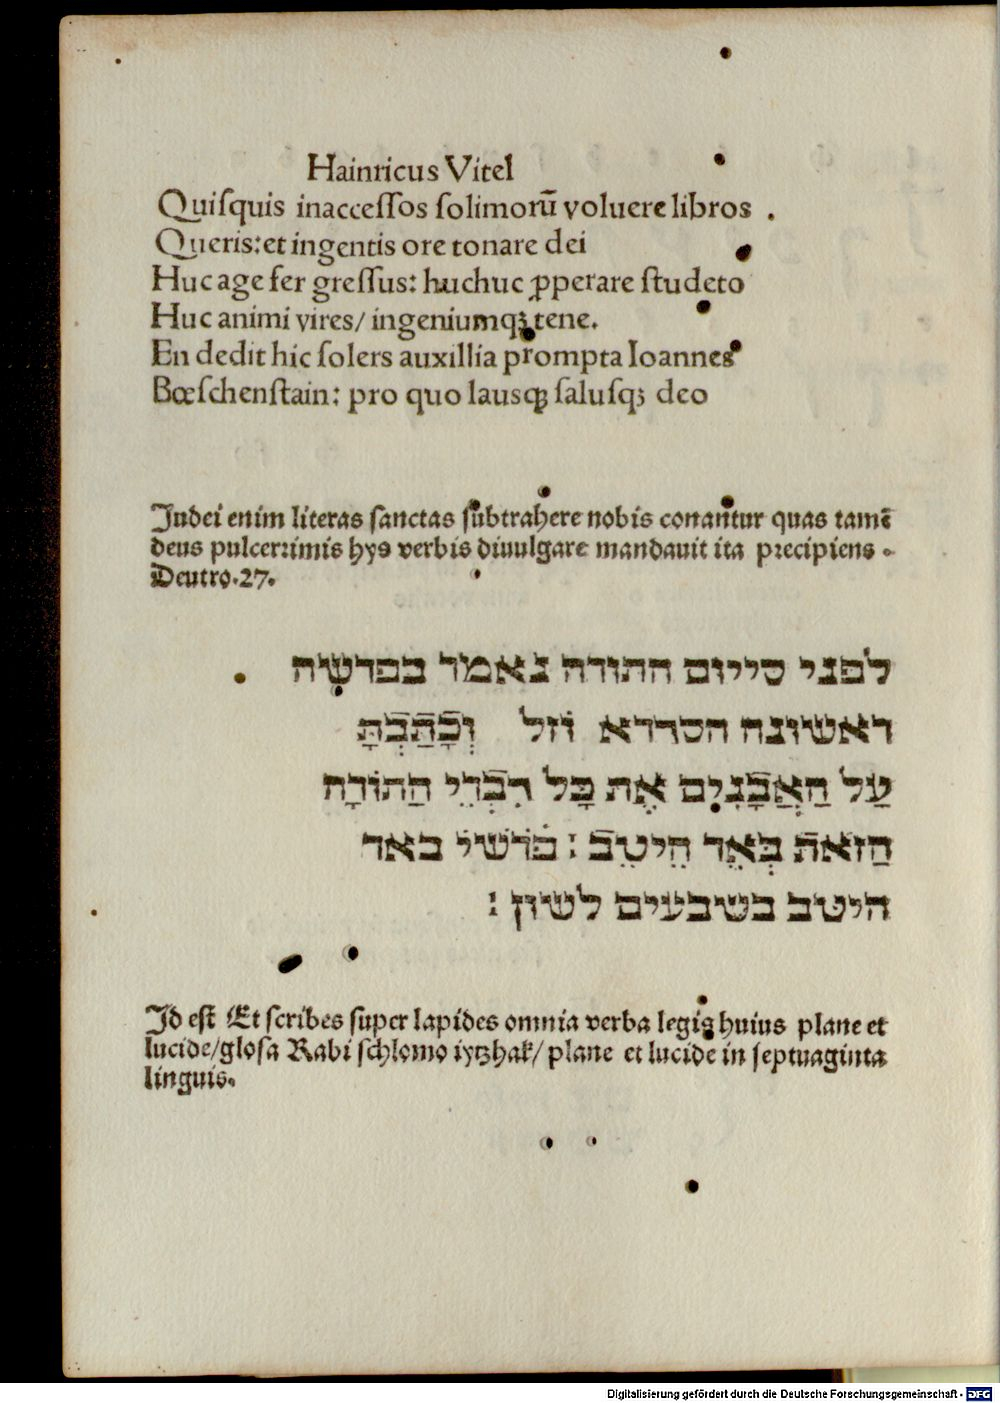 Hainricus Vitel
Quiſquis inacceſſos ſolimorū voluere libros .
Queris: et ingentis ore tonare dei
Huc age fer greſſus: huchuc ꝓperare ſtudeto
Huc animi vires/ ingeniumqꝫ tene.
En dedit hic ſolers auxillia prompta Ioannes
Bœſchenſtain: pro quo lausqꝫ ſaluſqꝫ deo
Judei enim literas ſanctas ſubtrahere nobis conantur quas tamē
deus pulcerrimis hys verbis diuulgare mandauit ita precipiens .
Deutro.27.
לפני סייום התורה נאמר בפרשיה
ראשונה הסדרא וזל וְכָתַבְתָּ
עַל הַאֲבָנִים אֶת כָּל דִבְרֵי הַתוֹרָה
הַזֹאת בְּאֵר הֵיטֵב : פרשי באר
היטב בשבעים לשון :
Id eſt Et ſcribes ſuper lapides omnia verba legis huius plane et
lucide/glosa Rabi ſchlomo iytzhak/ plane et lucide in ſeptuaginta
linguis.
Digitalisierung gefördert durch die Deutsche Forschungsgemeinschaft - DFG